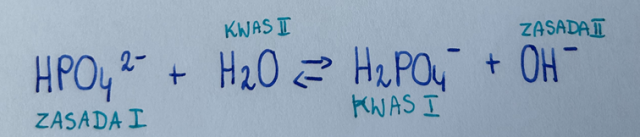 KWAS II ZASADA II
HPO₄²⁻ + H₂O ⇌ H₂PO₄⁻ + OH⁻
ZASADA I KWAS I